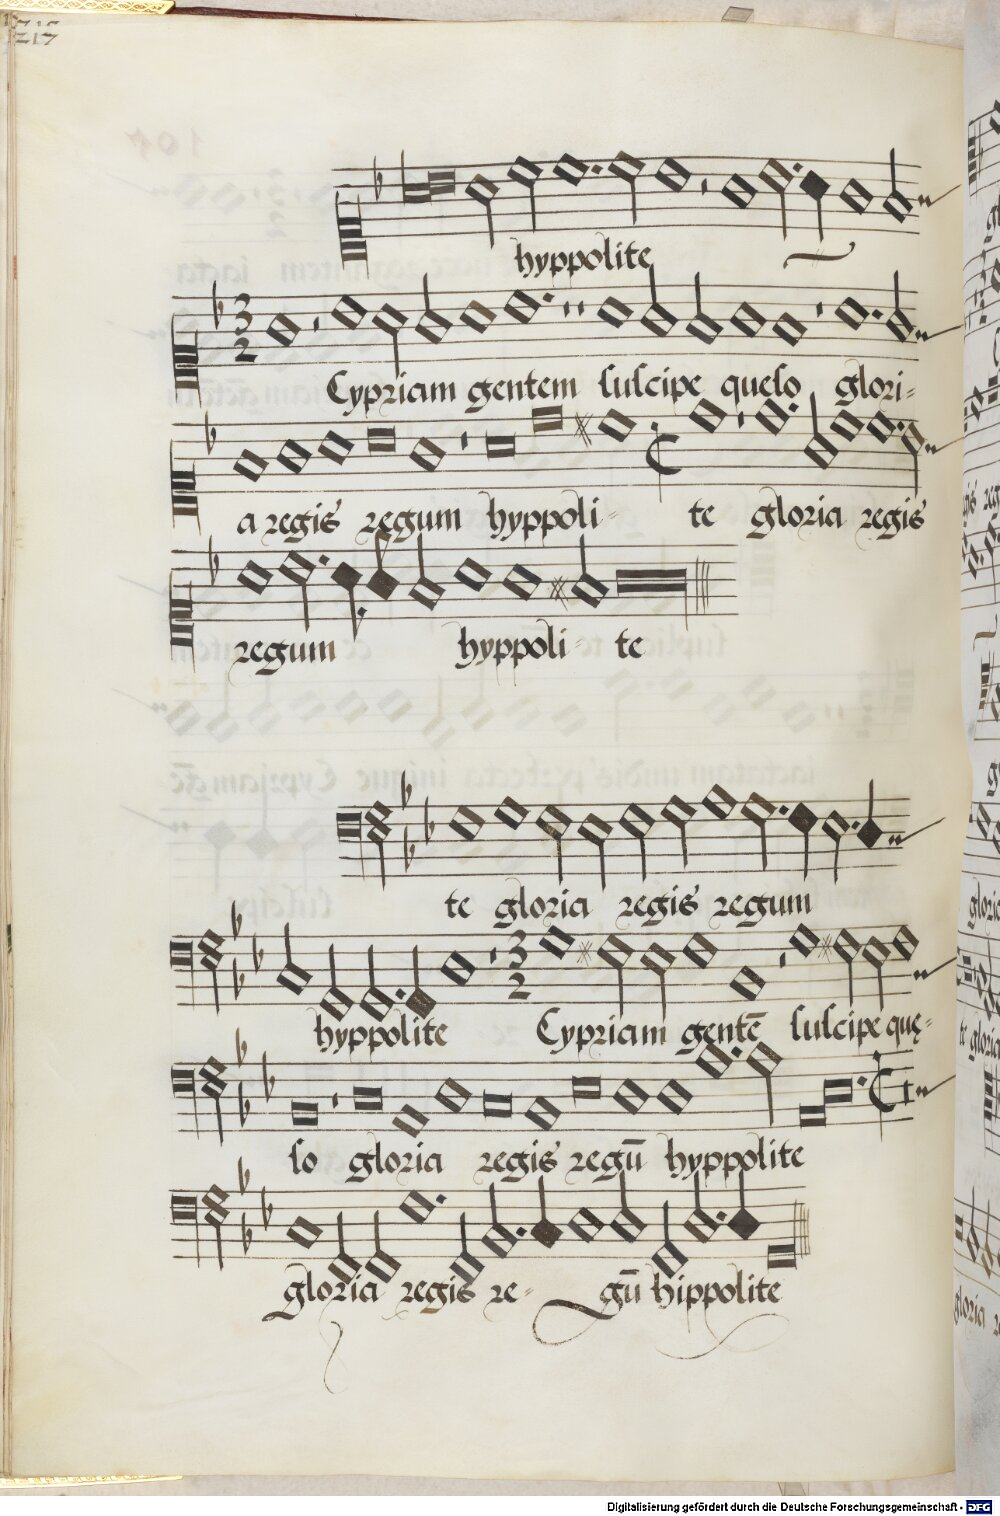 215
hyppolite
3
2
Cypriam gentem suscipe queso glori-
a regis regum hyppoli- te gloria regis
regum hyppoli- te
te gloria regis regum
3
2
hyppolite Cypriam gentē suscipe quę-
so gloria regis regū hyppolite
gloria regis re- gū hippolite
Digitalisierung gefördert durch die Deutsche Forschungsgemeinschaft - DFG